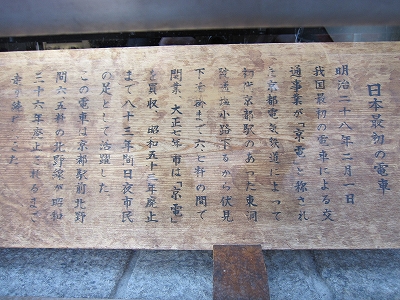 日本最初の電車
明治二十八年二月一日
我国最初の電車による交
通事業が「京電」と称され
た京都電気鉄道によって
初代京都駅のあった東洞
院通塩小路下るから伏見
下油掛まで六・七粁の間で
開業 大正七年市は「京電」
を買収 昭和五十三年廃止
まで八十三年間日夜市民
の足として活躍した
この電車は京都駅前北野
間六・五粁の北野線が昭和
三十六年廃止されるまで
走り続けていた